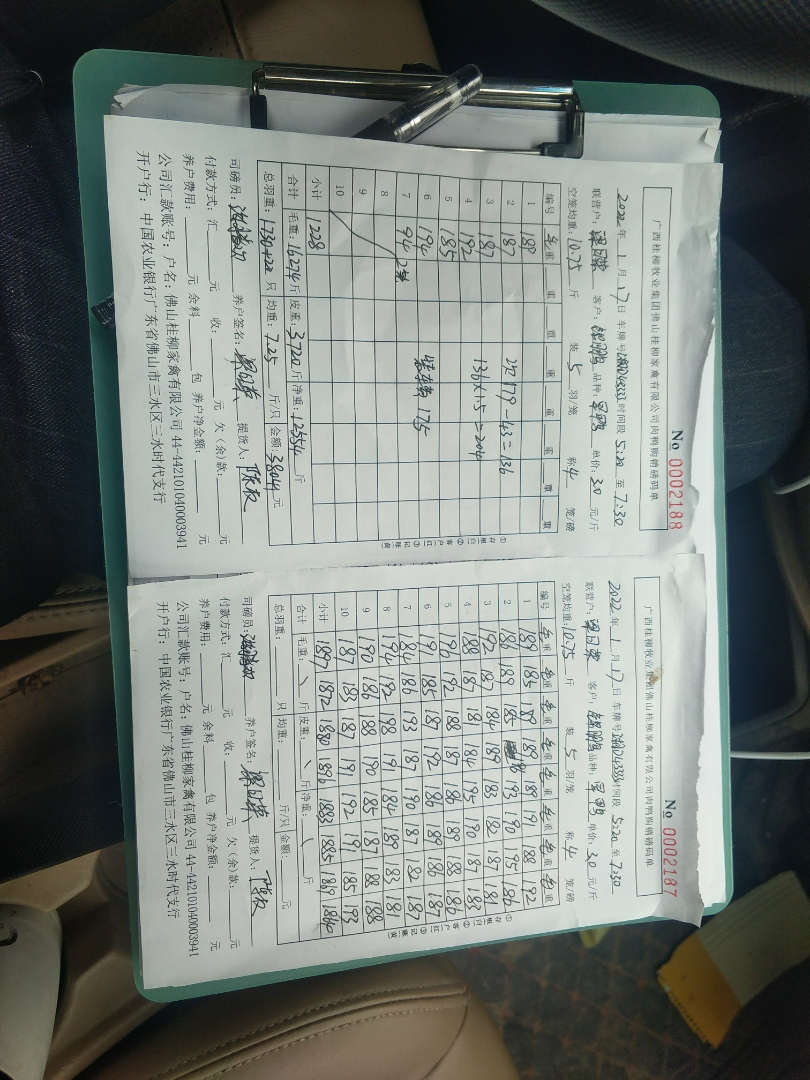 No 0002188
广西桂柳牧业集团佛山桂柳家禽有限公司肉鸭购销磅码单
2022年 1 月 17 日 车牌号 时间段 5:20 至 7:30
联营户: 客户: 品种: 单价: 3.0 元/斤
空笼均重: 10.75 斤 装 5 羽/笼 称 4 笼/磅
编号 毛重 重 重 重 重 重 重 重
1 189
2 187
3 187
4 192
5 185
6 194
7 94 2笼
8
9
10
小计 1228
179-43=136
136×1.5=204
装车费 175
合计 毛重: 16274 斤 皮重: 3720 斤 净重: 12554 斤
总羽重: 1730+22 只 均重: 7.25 斤/只 金额: 38041 元
司磅员: 养户签名: 提货人:
付款方式: 汇 元 收: 元 欠(余)款: 元
养户费用: 元 余料 包 养户净金额: 元
公司汇款账号: 户名: 佛山桂柳家禽有限公司 44-442101040003941
开户行: 中国农业银行广东省佛山市三水区三水时代支行
①存根白 ②客户红 ③记账黄
No 0002187
广西桂柳牧业集团佛山桂柳家禽有限公司肉鸭购销磅码单
2022年 1 月 17 日 车牌号 时间段 5:20 至 7:30
联营户: 客户: 品种: 单价: 3.0 元/斤
空笼均重: 10.75 斤 装 5 羽/笼 称 4 笼/磅
编号 毛重 毛重 毛重 毛重 毛重 毛重 毛重 毛重
1 189 185 189 189 189 191 188 192
2 186 189 185 193 190 195 186
3 192 187 184 189 183 182 187 181
4 188 187 181 184 195 190 187 187
5 196 192 188 187 186 189 188 186
6 191 185 187 192 186 189 186 187
7 184 186 193 187 190 187 182 187
8 194 192 198 191 184 189 183 181
9 190 186 188 190 185 187 188 188
10 187 183 187 191 192 191 185 193
小计 1897 1872 1880 1896 1883 1885 1869 1864
合计 毛重: 斤 皮重: 斤 净重: 斤
总羽重: 只 均重: 斤/只 金额: 元
司磅员: 养户签名: 提货人:
付款方式: 汇 元 收: 元 欠(余)款: 元
养户费用: 元 余料 包 养户净金额: 元
公司汇款账号: 户名: 佛山桂柳家禽有限公司 44-442101040003941
开户行: 中国农业银行广东省佛山市三水区三水时代支行
①存根白 ②客户红 ③记账黄